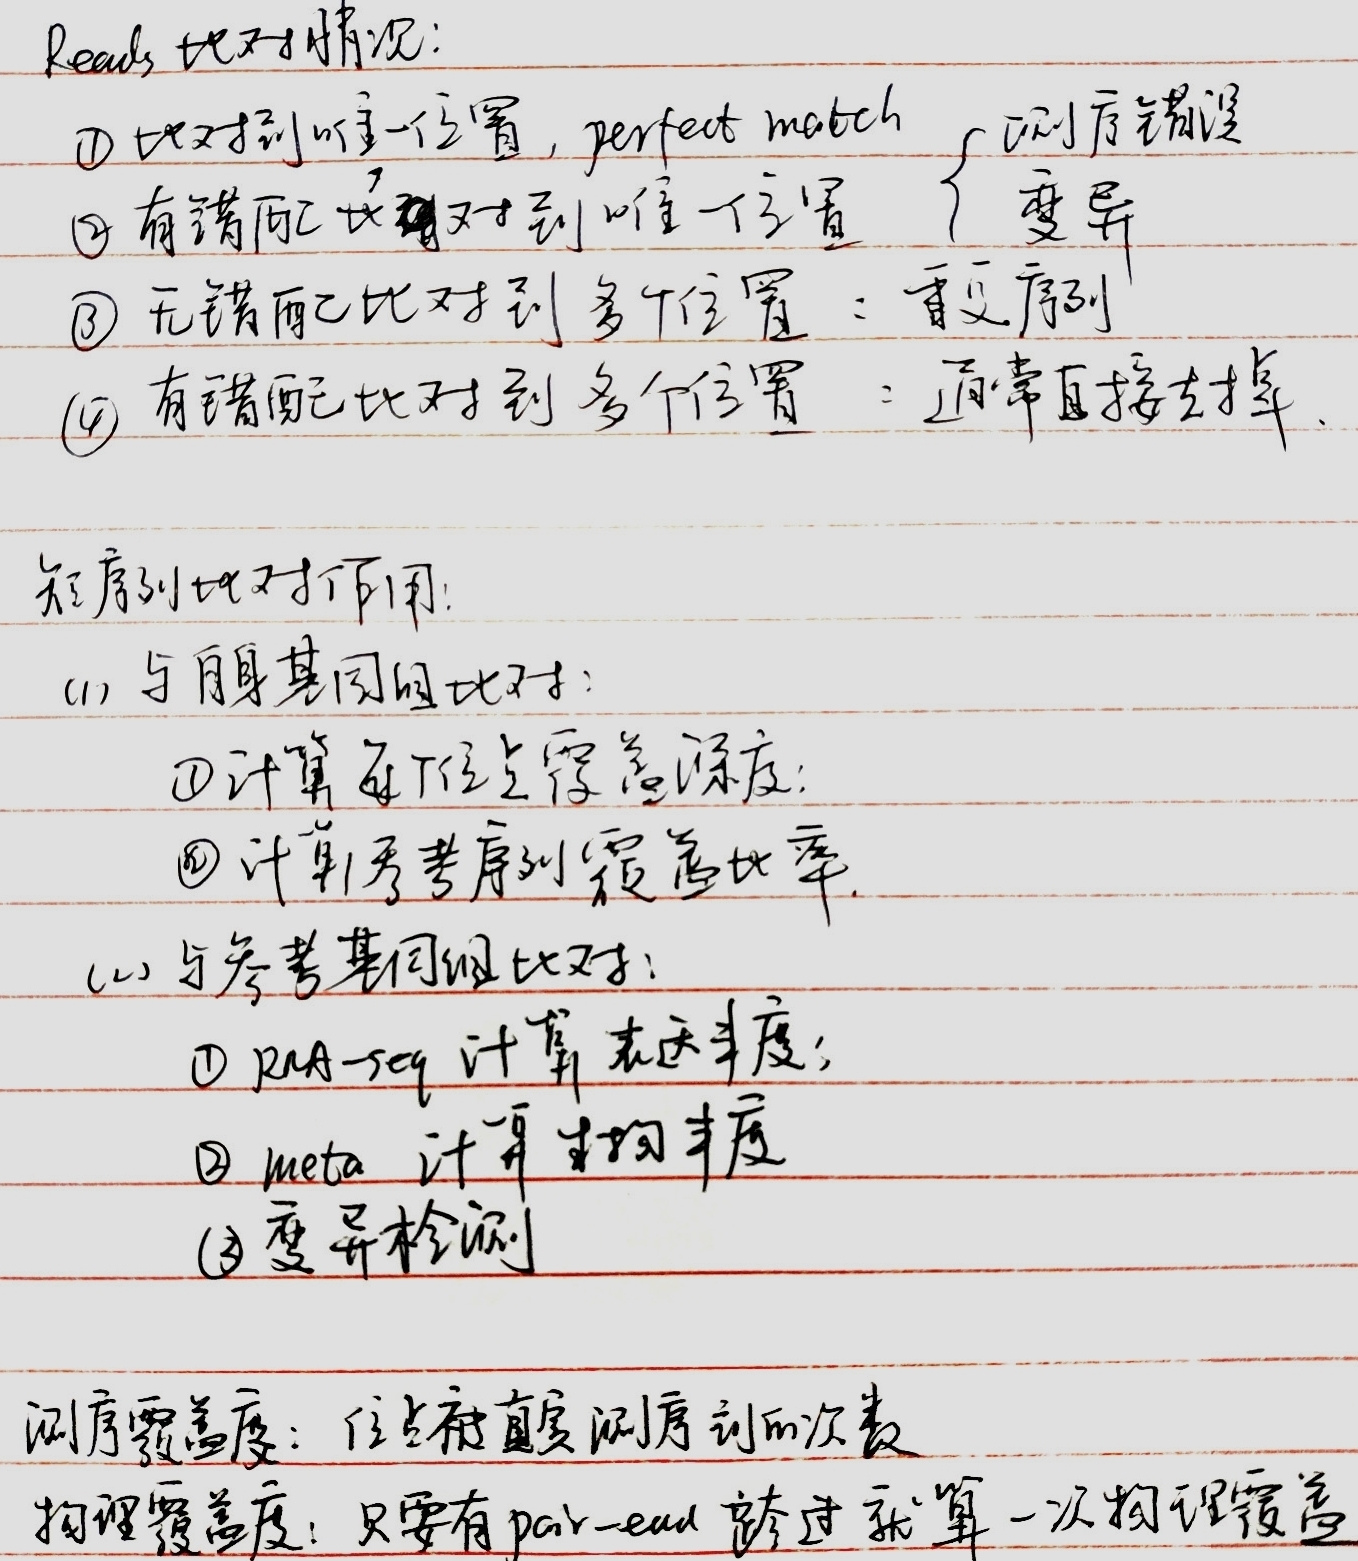 Reads 比对情况:
① 比对到唯一位置, perfect match { 测序错误
② 有错配比对到唯一位置 变异
③ 无错配比对到多个位置 : 重复序列
④ 有错配比对到多个位置 : 通常直接去掉.
短序列比对作用:
(1) 与自身基因组比对:
① 计算每个位点覆盖深度;
② 计算参考序列覆盖比率.
(2) 与参考基因组比对:
① RNA-seq 计算表达丰度;
② meta 计算生物丰度
③ 变异检测
测序覆盖度: 位点被真实测序到的次数
物理覆盖度: 只要有 pair-end 跨过就算一次物理覆盖